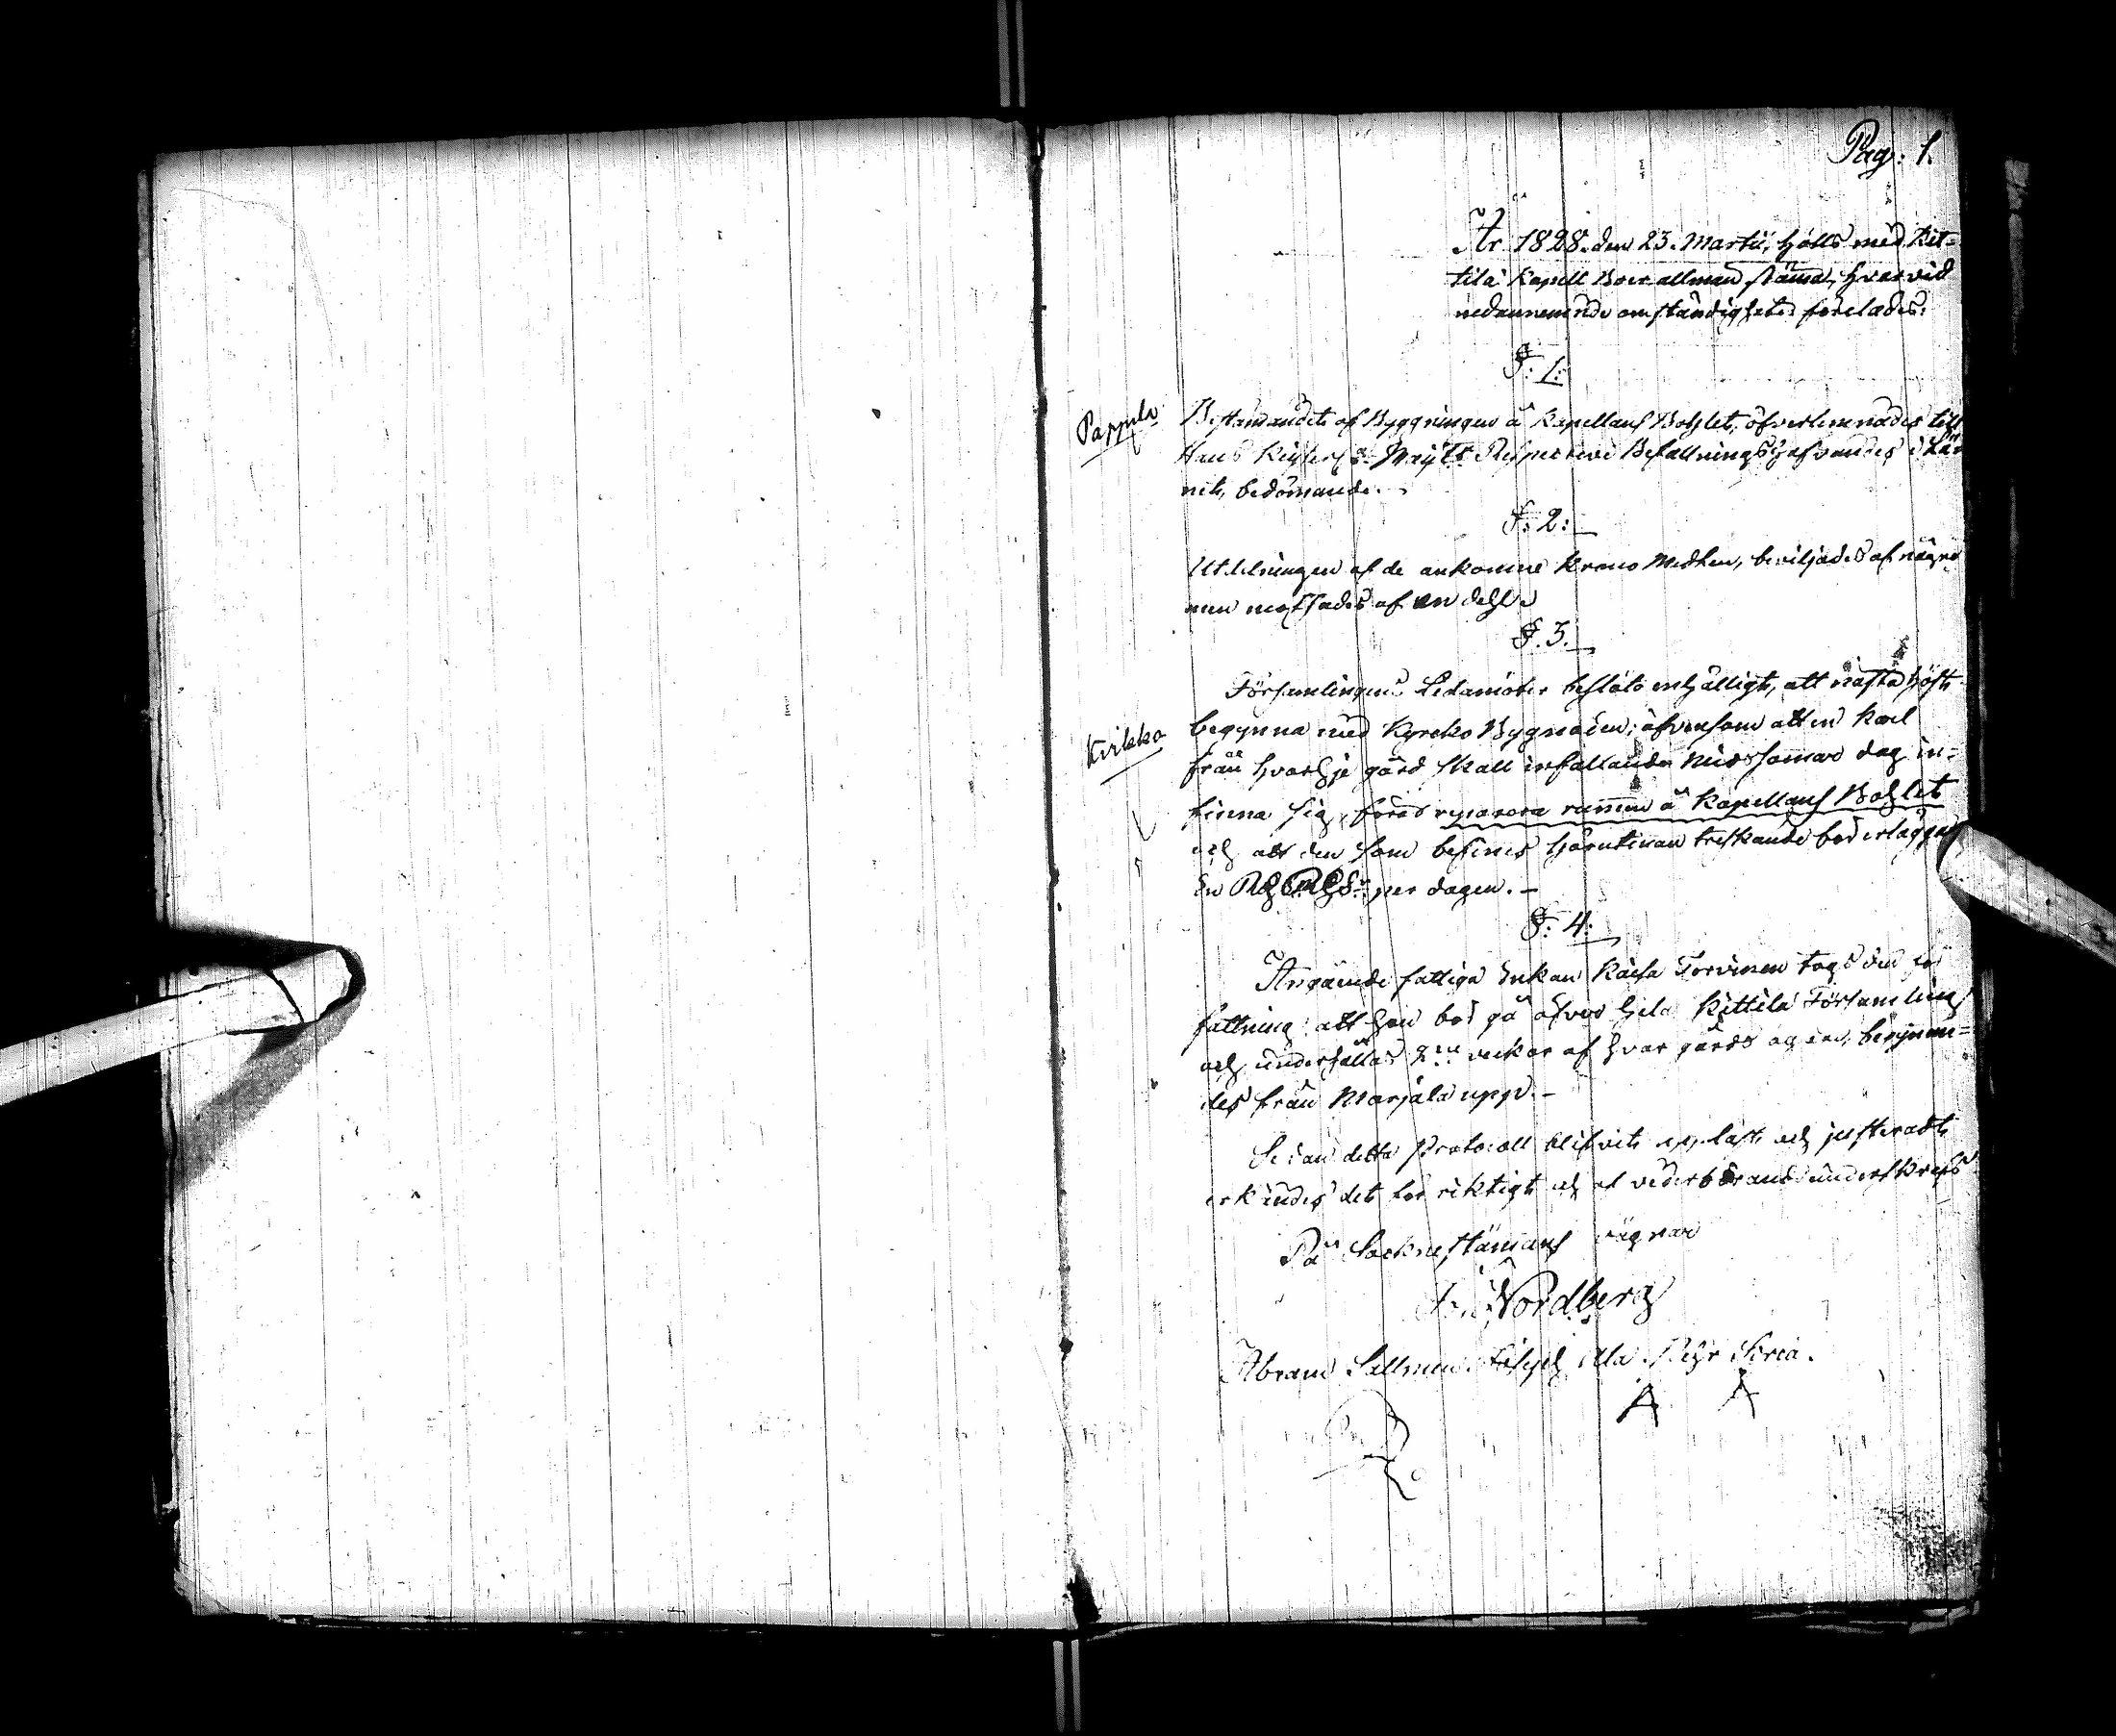 Pag: 1.
År 1828. den 23. Martii, hölls med Kit-
tilä Kapell Boer allmän stämma, hvarvid
nedannemnde omständigheter förelades:
§: 1:
Pappila
Bestämandet af Byggningen å Kapellans Bohlet, öfverlemnades till
Hans Keijserl. Maijts Respective Befallningshafvandes i Lä-
nets, bedömande.
§: 2:
Utdelningen af de ankomne Krono Medlen, beviljades af några
men motsades af en dehl.
§. 3.
Församlingens Ledamöter beslöto enhälligt, att nästa höst
Kirkko
begynna med Kyrcko Bygnaden; äfvensom att en Karl
från hvarje gård skall infallande Midssomar dag in-
finna sig, för att reparera rummen å Kapellans Bohlet
och att den som befines häruttinnan treskande bör erlägga
En per dagen. -
§: 4:
Angående fattiga Enkan Kaisa Torvinen togs den för
fattning att hon bör gå öfver hela Kittilä Församling
och underhållas 2 veckor af hvar gårds ägare, begynnan-
des från Marjala upp. -
Sedan detta Protocoll blifvit uppläst och justeradt,
erkändes det för riktigt och af vederbörande underskrefs
På Socknestämans vägnar
Nordberg
Abram Sallmen Ala Pehr Siria.